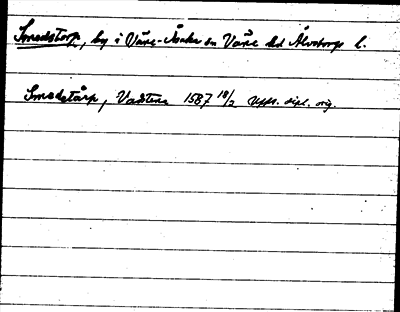 Smedstorp, by i Våne-Åsaka sn Väne hd Älvsborgs l.
Smedstårp, Vadstena 1587 18/2 Upps. dipl. orig.